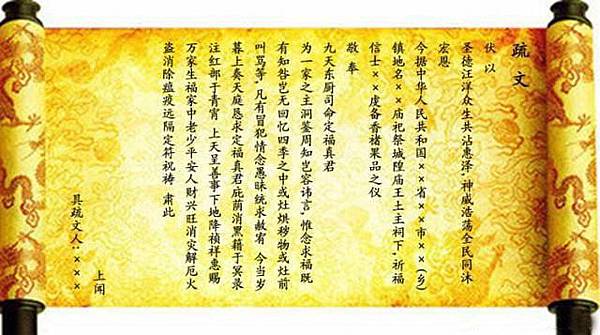 疏文
伏以
圣德汪洋众生共沾惠泽，神威浩荡全民同沐
宏恩
今据中华人民共和国××省××市××(乡)
镇地名××庙祀祭城隍庙王土主祠下，祈福
信士××虔备香褚果品之仪
敬奉
九天东厨司命定福真君
为一家之主洞鉴周知岂容讳言，惟念求福既
有知咎岂无回忆四季之中或灶烘秽物或灶前
叫骂等，凡有冒犯情念愚昧统求赦宥 今当岁
暮上奏天庭恳求定福真君庇荫消黑籍于冥录
注红部于青霄 上天呈善事下地降祯祥惠赐
万家生福家中老少平安人财兴旺消灾解厄火
盗消除瘟疫远隔定符祝祷 肃此
具疏文人：×××
上闻